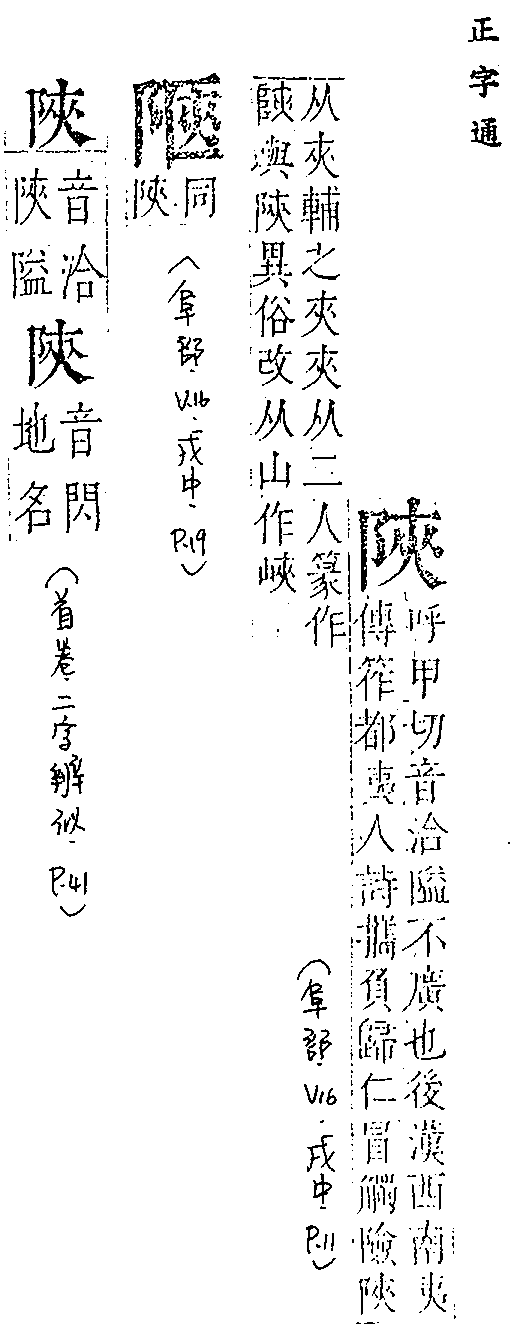 正字通
陜
呼甲切音洽隘不廣也後漢西南夷
傳筰都夷人詩攜負歸仁冒觸險陜
(阜部.V16.戌中.P.11)
从夾輔之夾夾从二人篆作
與陜異俗改从山作峽
同
陜
(阜部.V.16.戌中.P.19)
陜
音洽
陜隘
陝
音閃
地名
(首卷.二字辨似.P.41)